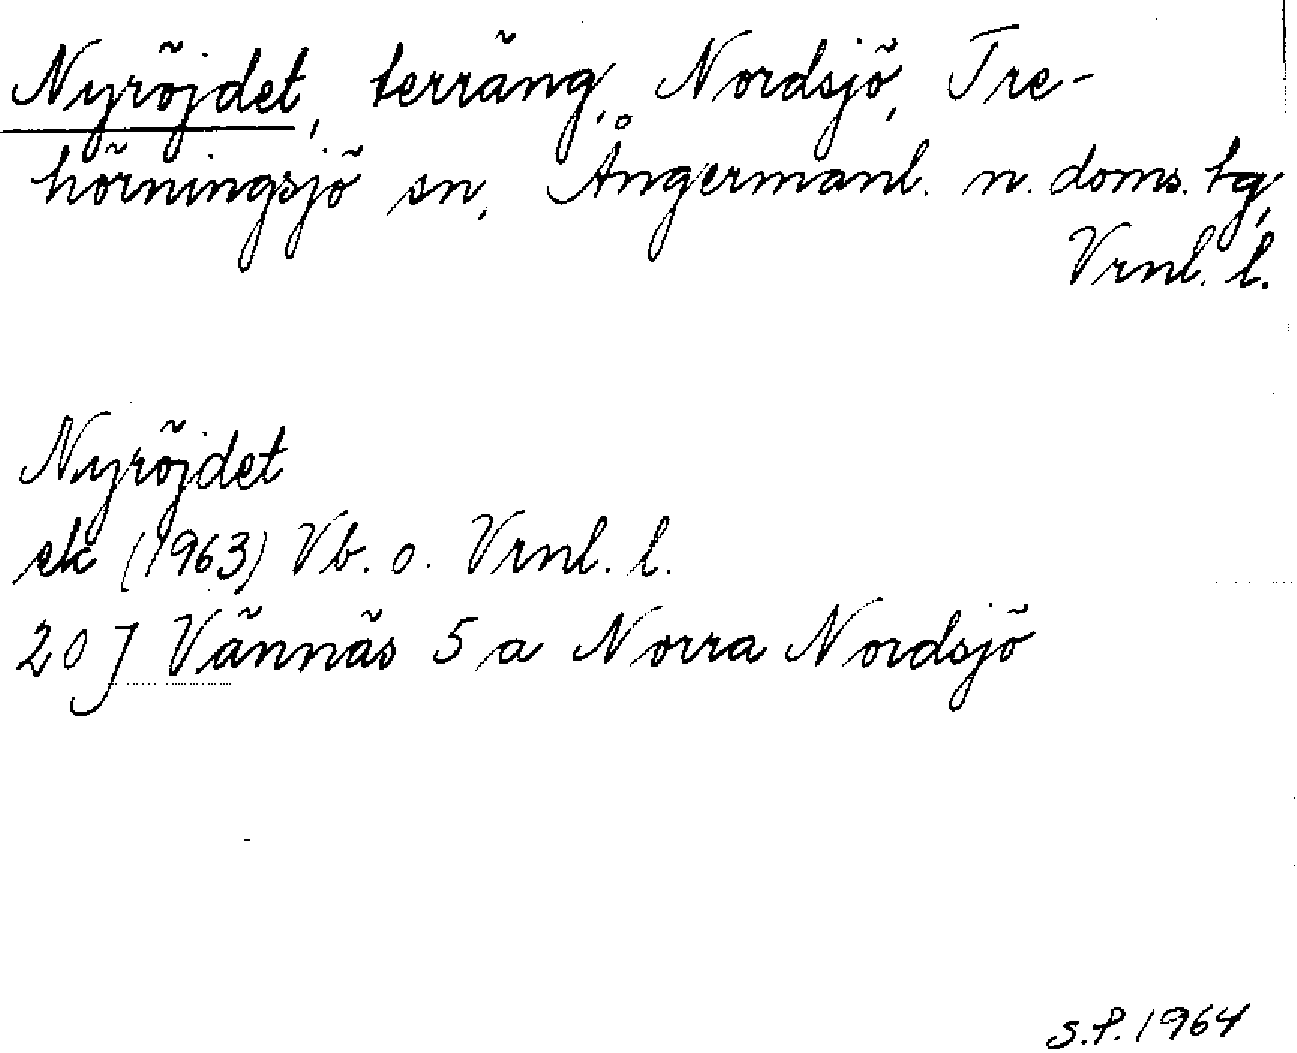 Nyröjdet, terräng, Nordsjö, Tre-
hörningsjö sn, Ångermanl. n. doms. tg,
Vrnl. l.
Nyröjdet
ek (1963) Vb. o. Vrnl. l.
20 J Vännäs 5 a Norra Nordsjö
S.P. 1964